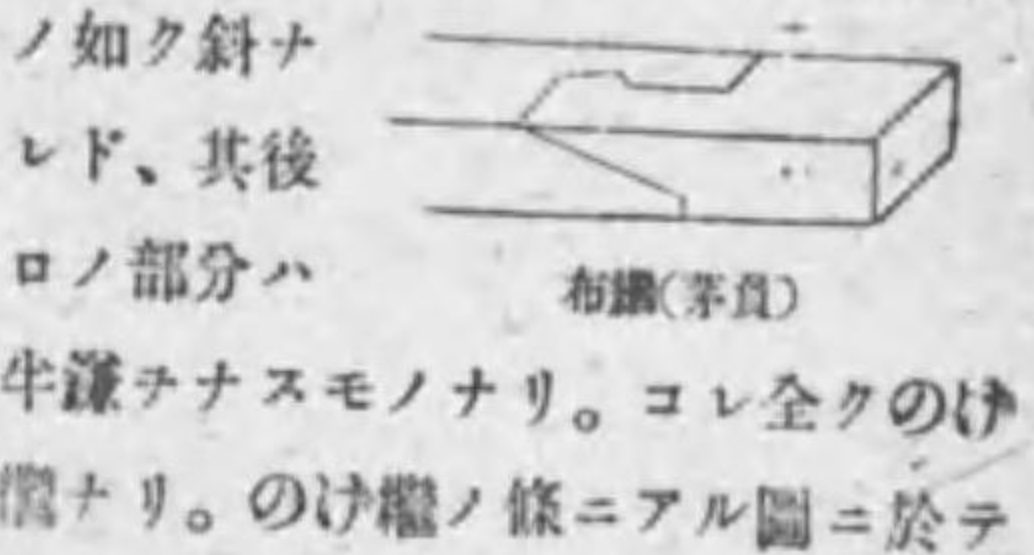 ノ如ク斜ナ
レド、其後
ロノ部分ハ
布繼(茅負)
半鎌ヲナスモノナリ。コレ全クのけ
繼ナリ。のけ繼ノ條ニアル圖ニ於テ